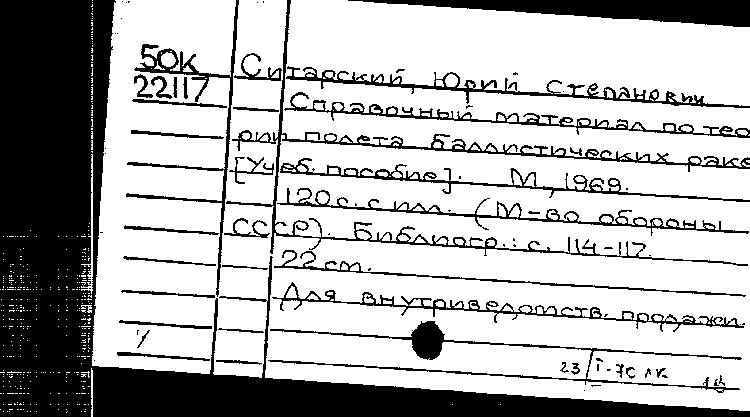 50К
22117
Ситарский, Юрий Степанович
Справочный материал по тео
рии полета баллистических раке
[Учеб. пособие]. М., 1969.
120 с. с илл. (М-во обороны
СССР). Библиогр.: с. 114-117.
22 см.
Для внутриведомств. продажи
23/I-70 лк